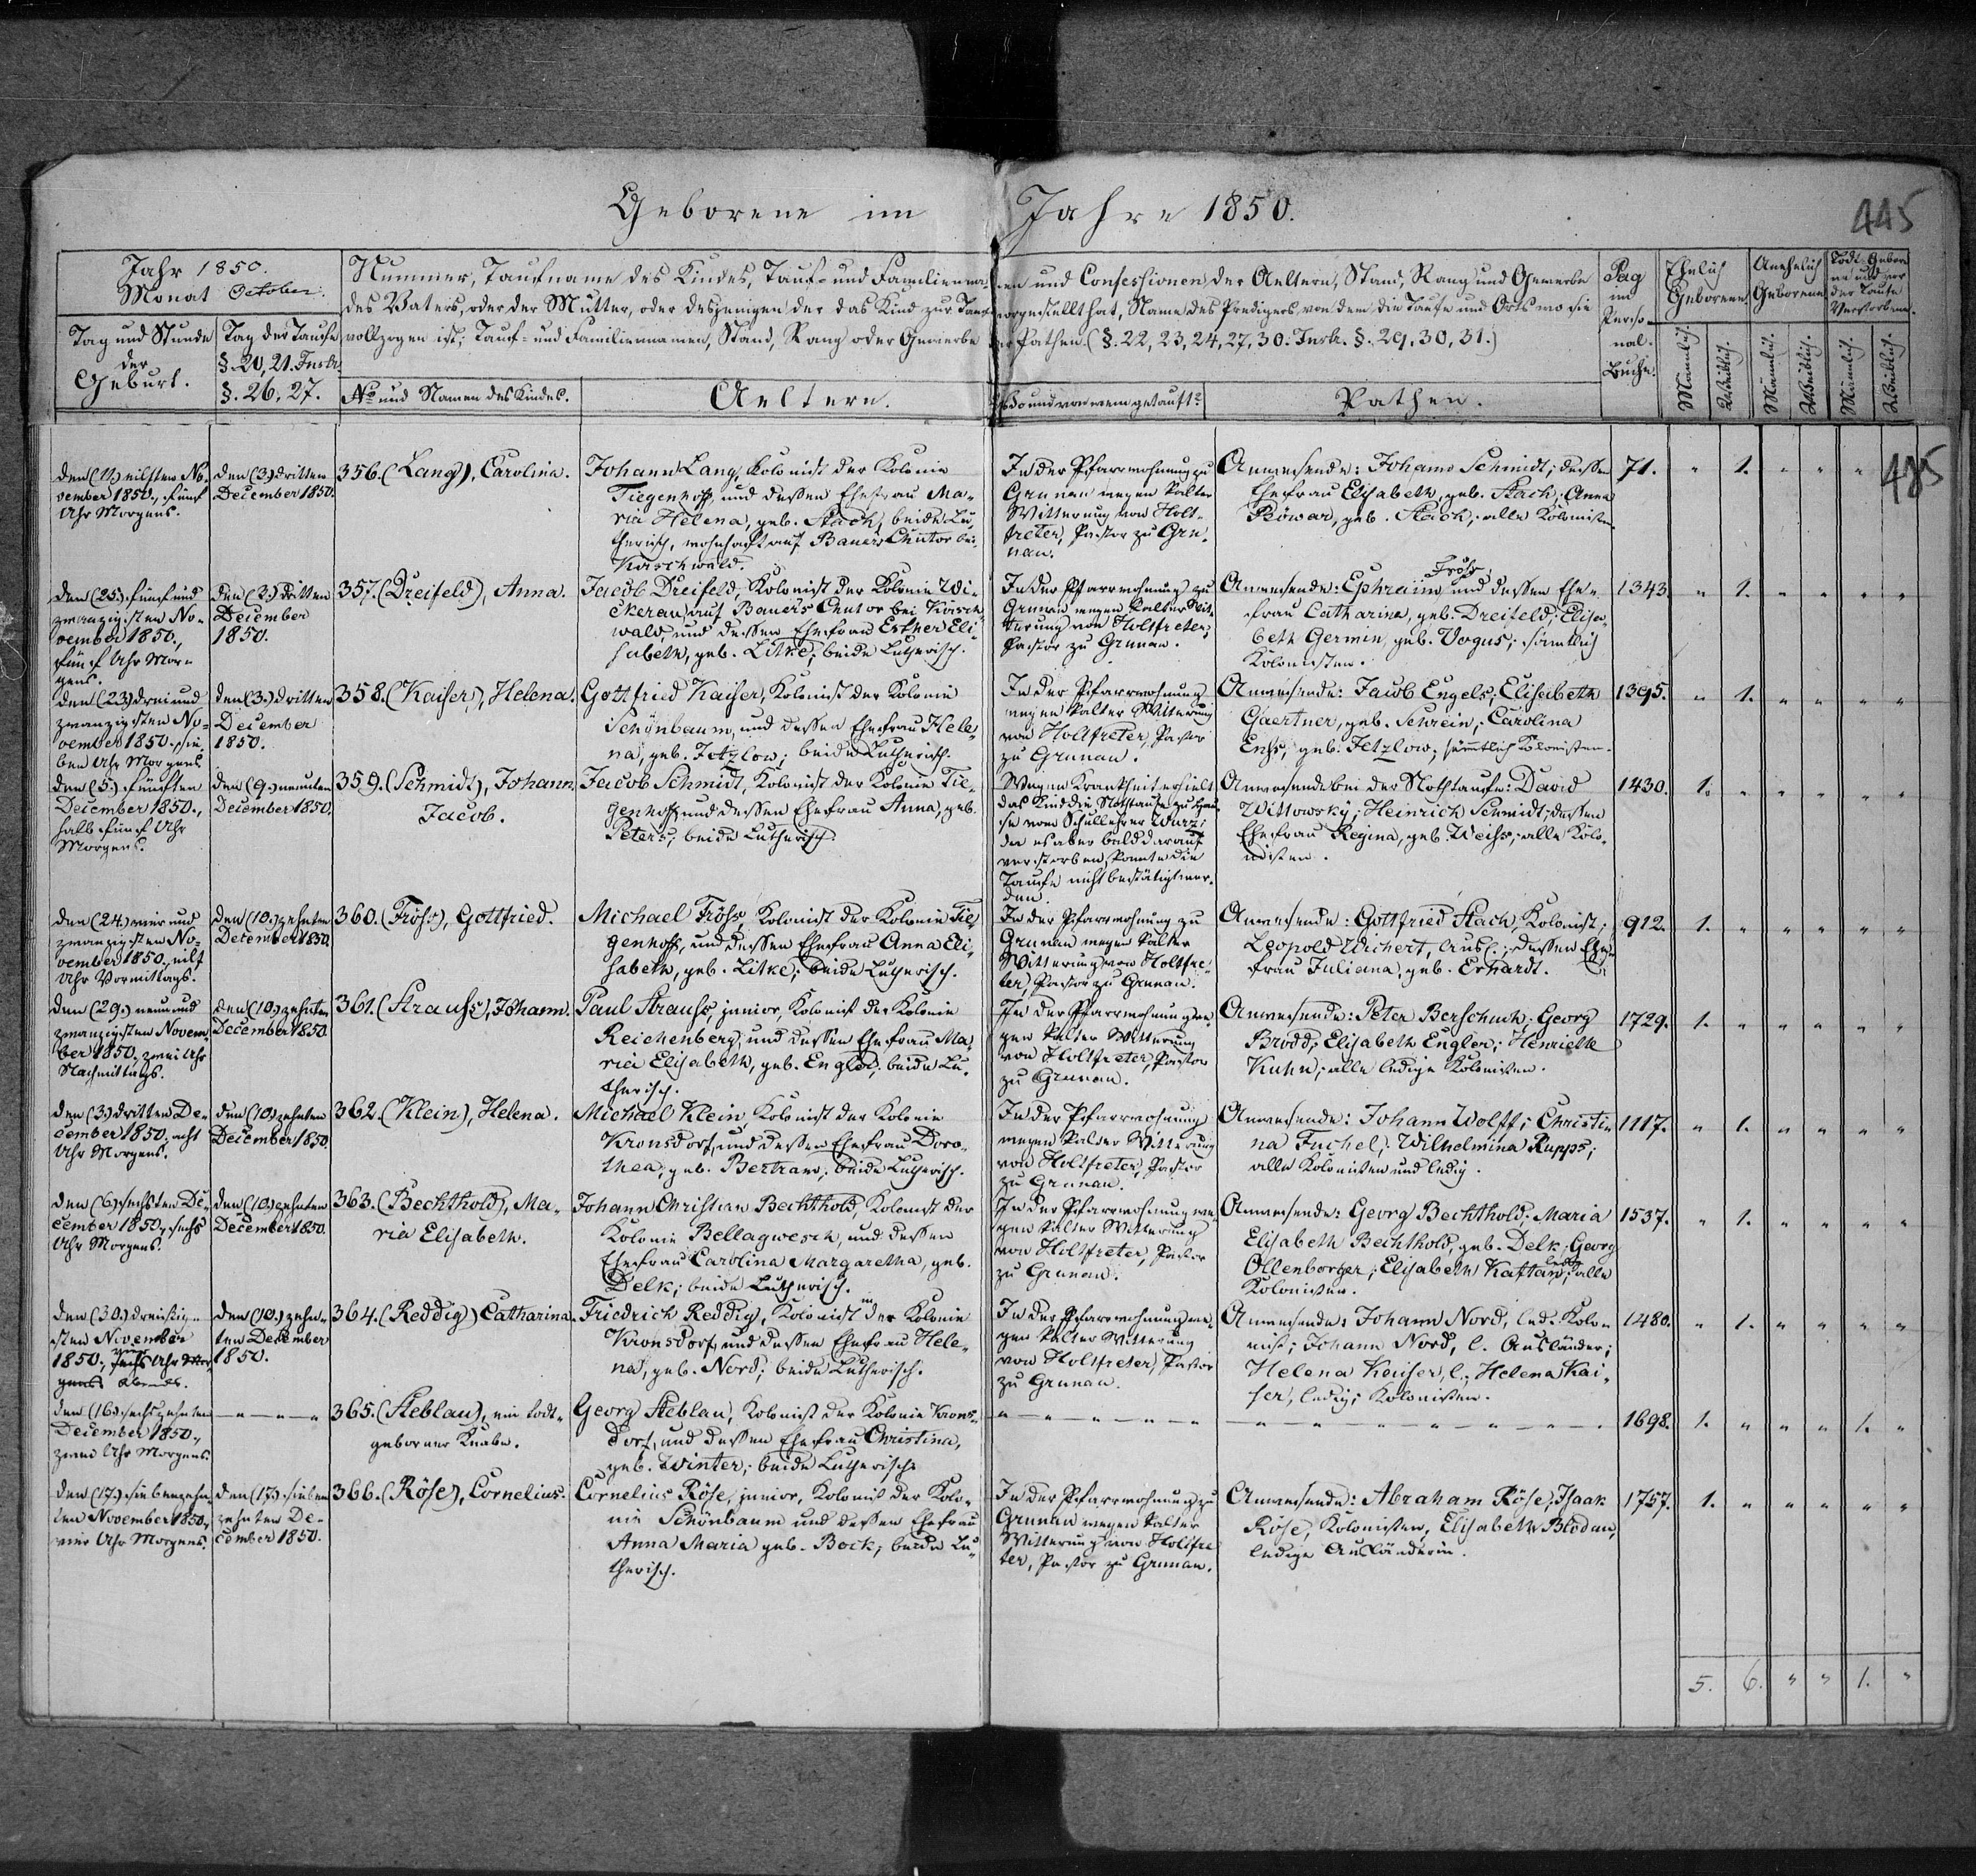 Geborene im Jahre 1850.
445
Jahr 1850.
Monat October.
Tag und Stunde
der
Geburt.
Tag der Taufe
§. 20, 21. Instr.
§. 26, 27.
Nummer, Taufname des Kindes, Tauf- und Familienna-men und Confessionen der Aeltern, Stand, Rang und Gewerbe
des Vaters, oder der Mutter, oder desjenigen der das Kind zur Taufe vorgestellt hat, Name des Predigers von dem die Taufe und Orts wo sie
vollzogen ist; Tauf- und Familiennamen, Stand, Rang oder Gewerbe der Pathen. (§. 22, 23, 24, 27, 30. Instr. §. 29, 30, 31.)
No und Namen des Kindes.
Aeltern.
Wo und von wem getauft?
Pathen.
Pag
im
Perso-
nal-
Buche.
Ehelich
Geborene.
Unehelich
Geborene
Todt-Gebore-
ne und vor
der Taufe
Verstorbene.
Männlich.
Weiblich.
Männlich.
Weiblich.
Männlich.
Weiblich.
den (11.) eilften No-
vember 1850., fünf
Uhr Morgens.
den (3.) dritten
December 1850.
356. (Lang), Carolina.
Johann Lang, Kolonist der Kolonie
Tiegenhoff, und dessen Ehefrau Ma-
ria Helena, geb. Stach, beide Lu-
therisch, wohnhaft auf Bauers Chutor bei
Kaischwald.
In der Pfarrwohnung zu
Grunau wegen kalter
Witterung von Holt-
freter, Pastor zu Gru-
nau.
Anwesende: Johann Schmidt; dessen
Ehefrau Elisabeth, geb. Stach; Anna
Böwar, geb. Stach; alle Kolonisten.
71. " 1. " " "
485
den (25.) fünfund
zwanzigsten No-
vember 1850.,
fünf Uhr Mor-
gens.
den (3.) dritten
December
1850.
357. (Dreifeld), Anna.
Jacob Dreifeld, Kolonist der Kolonie Wi-
ckerau auf Bauers Chutor bei Kaisch
wald und dessen Ehefrau Esther Eli-
sabeth, geb. Litke; beide Lutherisch.
In der Pfarrwohnung zu
Grunau wegen kalter Wit-
terung von Holtfreter,
Pastor zu Grunau.
Fröse,
Anwesende: Ephraim und dessen Ehe-
frau Catharina, geb. Dreifeld; Elisa-
beth Germin, geb. Vogus; sämtlich
Kolonisten.
1343. " 1. " " " "
den (23.) drei und
zwanzigsten No-
vember 1850., sie-
ben Uhr Morgens
den (3.) dritten
December
1850.
358. (Kaiser), Helena.
Gottfried Kaiser, Kolonist der Kolonie
Schönbaum, und dessen Ehefrau Hele-
na, geb. Jetzlow; beide Lutherisch.
In der Pfarrwohnung
wegen kalter Witterung
von Holtfreter, Pastor
zu Grunau.
Anwesende: Jacob Engels; Elisabeth
Gaertner, geb. Schrein; Carolina
Enss, geb. Jetzlow; sämmtlich Kolonisten.
1395. " 1. " " " "
den (5.) fünften
December 1850.,
halb fünf Uhr
Morgens.
den (9.) neunten
December 1850.
359. (Schmidt), Johann
Jacob.
Jacob Schmidt, Kolonist der Kolonie Tie-
genhoff, und dessen Ehefrau Anna, geb.
Peters; beide Lutherisch.
Wegen Krankheit erhielt
das Kind die Nothtaufe zu Hau-
se vom Schullehrer Wurz;
da es aber bald darauf
verstorben, konnte die
Taufe nicht bestätigt wer-
den.
Anwesende bei der Nothtaufe: David
Wittowsky; Heinrich Schmidt; dessen
Ehefrau Regina, geb. Weiss; alle Kolo-
nisten.
1430. 1. " " " " "
den (24.) vier und
zwanzigsten No-
vember 1850., eilf
Uhr Vormittags.
den (10.) zehnten
December 1850.
360. (Fröse), Gottfried.
Michael Fröse, Kolonist der Kolonie Tie-
genhoff, und dessen Ehefrau Anna Eli-
sabeth, geb. Litke; beide Lutherisch.
In der Pfarrwohnung zu
Grunau wegen kalter
Witterung von Holtfre-
ter, Pastor zu Grunau.
Anwesende: Gottfried Stach, Kolonist;
Leopold Wichert, Ausl.; dessen Ehe-
frau Juliana, geb. Erhardt.
912. 1. " " " " "
den (29.) neun und
zwanzigsten Novem-
ber 1850., zwei Uhr
Nachmittags.
den (10.) zehnten
December 1850.
361. (Strauss), Johann.
Paul Strauss, junior, Kolonist der Kolonie
Reichenberg, und dessen Ehefrau Ma-
ria Elisabeth, geb. Engler; beide Lu-
therisch.
In der Pfarrwohnung we-
gen kalter Witterung
von Holtfreter, Pastor
zu Grunau.
Anwesende: Peter Berschuck; Georg
Brodd; Elisabeth Engler; Henriette
Kuhn; alle ledige Kolonisten.
1729. 1. " " " " "
den (3.) dritten De-
cember 1850., acht
Uhr Morgens.
den (10.) zehnten
December 1850.
362. (Klein), Helena.
Michael Klein, Kolonist der Kolonie
Kronsdorf, und dessen Ehefrau Doro-
thea, geb. Bertram; beide Lutherisch.
In der Pfarrwohnung
wegen kalter Witterung
von Holtfreter, Pastor
zu Grunau.
Anwesende: Johann Wolff; Christi-
na Fuchel; Wilhelmina Rupps;
alle Kolonisten und ledig.
1117. " 1. " " " "
den (6.) sechsten De-
cember 1850., sechs
Uhr Morgens.
den (10.) zehnten
December 1850.
363. (Bechthold), Ma-
ria Elisabeth.
Johann Christian Bechthold, Kolonist der
Kolonie Bellagwesch, und dessen
Ehefrau Carolina Margaretha, geb.
Delk; beide Lutherisch.
In der Pfarrwohnung we-
gen kalter Witterung
von Holtfreter, Pastor
zu Grunau.
Anwesende: Georg Bechthold; Maria
Elisabeth Bechthold, geb. Delk; Georg
Ollenborger; Elisabeth Kaftan, ledig; alle
Kolonisten.
1537. " 1. " " " "
den (30.) dreißig-
sten November
1850., sechs Uhr Mor-
gens Abends.
den (10.) zehn-
ten December
1850.
364. (Reddig) Catharina.
Friedrich Reddig, Kolonist in der Kolonie
Kronsdorf, und dessen Ehefrau Hele-
na, geb. Nord; beide Lutherisch.
In der Pfarrwohnung we-
gen kalter Witterung
von Holtfreter, Pastor
zu Grunau.
Anwesende: Johann Nord, led. Kolo-
nist; Johann Nord, l. Ausländer;
Helena Kaiser, l.; Helena Kai-
ser, ledig; Kolonisten.
1480. " 1. " " " "
den (16.) sechszehnten
December 1850.,
zwei Uhr Morgens.
365. (Steblau), ein todt-
geborner Knabe.
Georg Steblau, Kolonist der Kolonie Krons-
dorf, und dessen Ehefrau Christina,
geb. Winter; beide Lutherisch.
1698. 1. " " " 1. "
den (17.) siebenzehn-
ten November 1850.,
vier Uhr Morgens.
den (17.) sieben
zehnten De-
cember 1850.
366. (Röse), Cornelius.
Cornelius Röse, junior, Kolonist der Kolo-
nie Schönbaum und dessen Ehefrau
Anna Maria geb. Bock; beide Lu-
therisch.
In der Pfarrwohnung zu
Grunau wegen kalter
Witterung von Holtfre
ter, Pastor zu Grunau.
Anwesende: Abraham Röse; Isaak
Röse, Kolonisten, Elisabeth Blodau,
ledige Ausländerin.
1757. 1. " " " " "
5. 6. " " 1. "